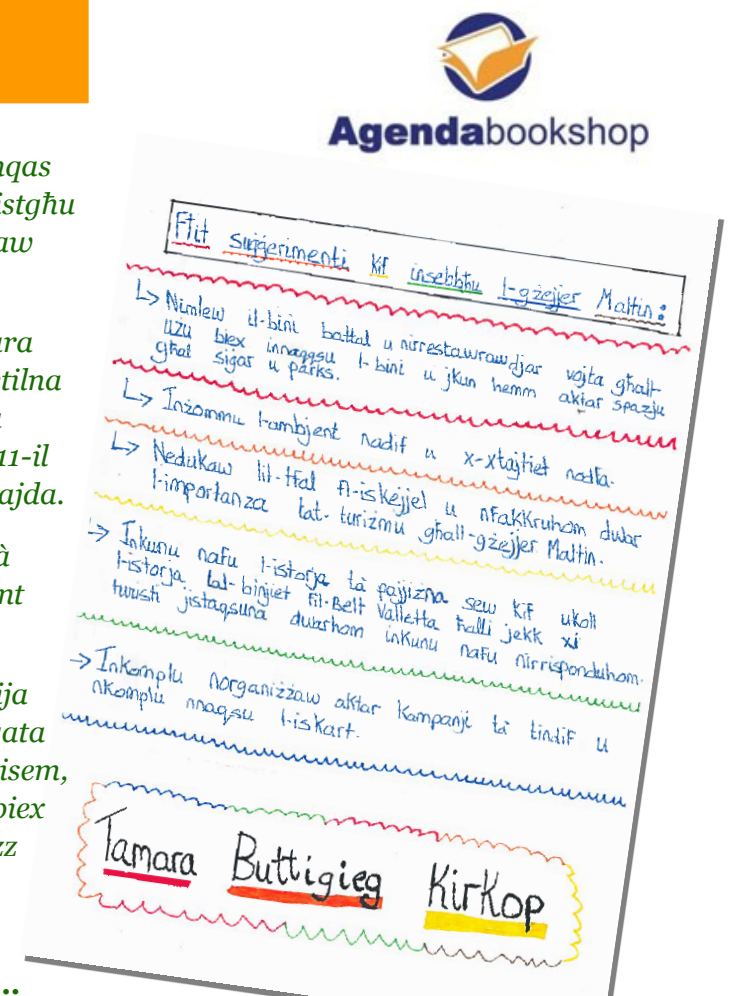 Agendabookshop
nqas
istgħu
aw
ura
etilna
11-il
ajda.
à
nt
ija
ata
isem,
biex
zz
..
Ftit suġġerimenti kif insebbħu l-gżejjer Maltin:
↳ Nimlew il-bini battal u nirrestawraw djar vojta għall-
użu biex innaqqsu l-bini u jkun hemm aktar spazju
għal siġar u parks.
↳ Inżommu l-ambjent nadif u x-xtajtiet nodfa.
↳ Nedukaw lit-tfal fl-iskejjel u nfakkruhom dwar
l-importanza tat-turiżmu għall-gżejjer Maltin.
→ Inkunu nafu l-istorja ta' pajjiżna sew kif ukoll
l-istorja tal-binjiet fil-Belt Valletta ħalli jekk xi
turisti jistaqsuna dwarhom inkunu nafu nirrisponduhom.
→ Inkomplu norganizzaw aktar kampanji ta' tindif u
nkomplu nnaqsu l-iskart.
Tamara Buttigieg Kirkop